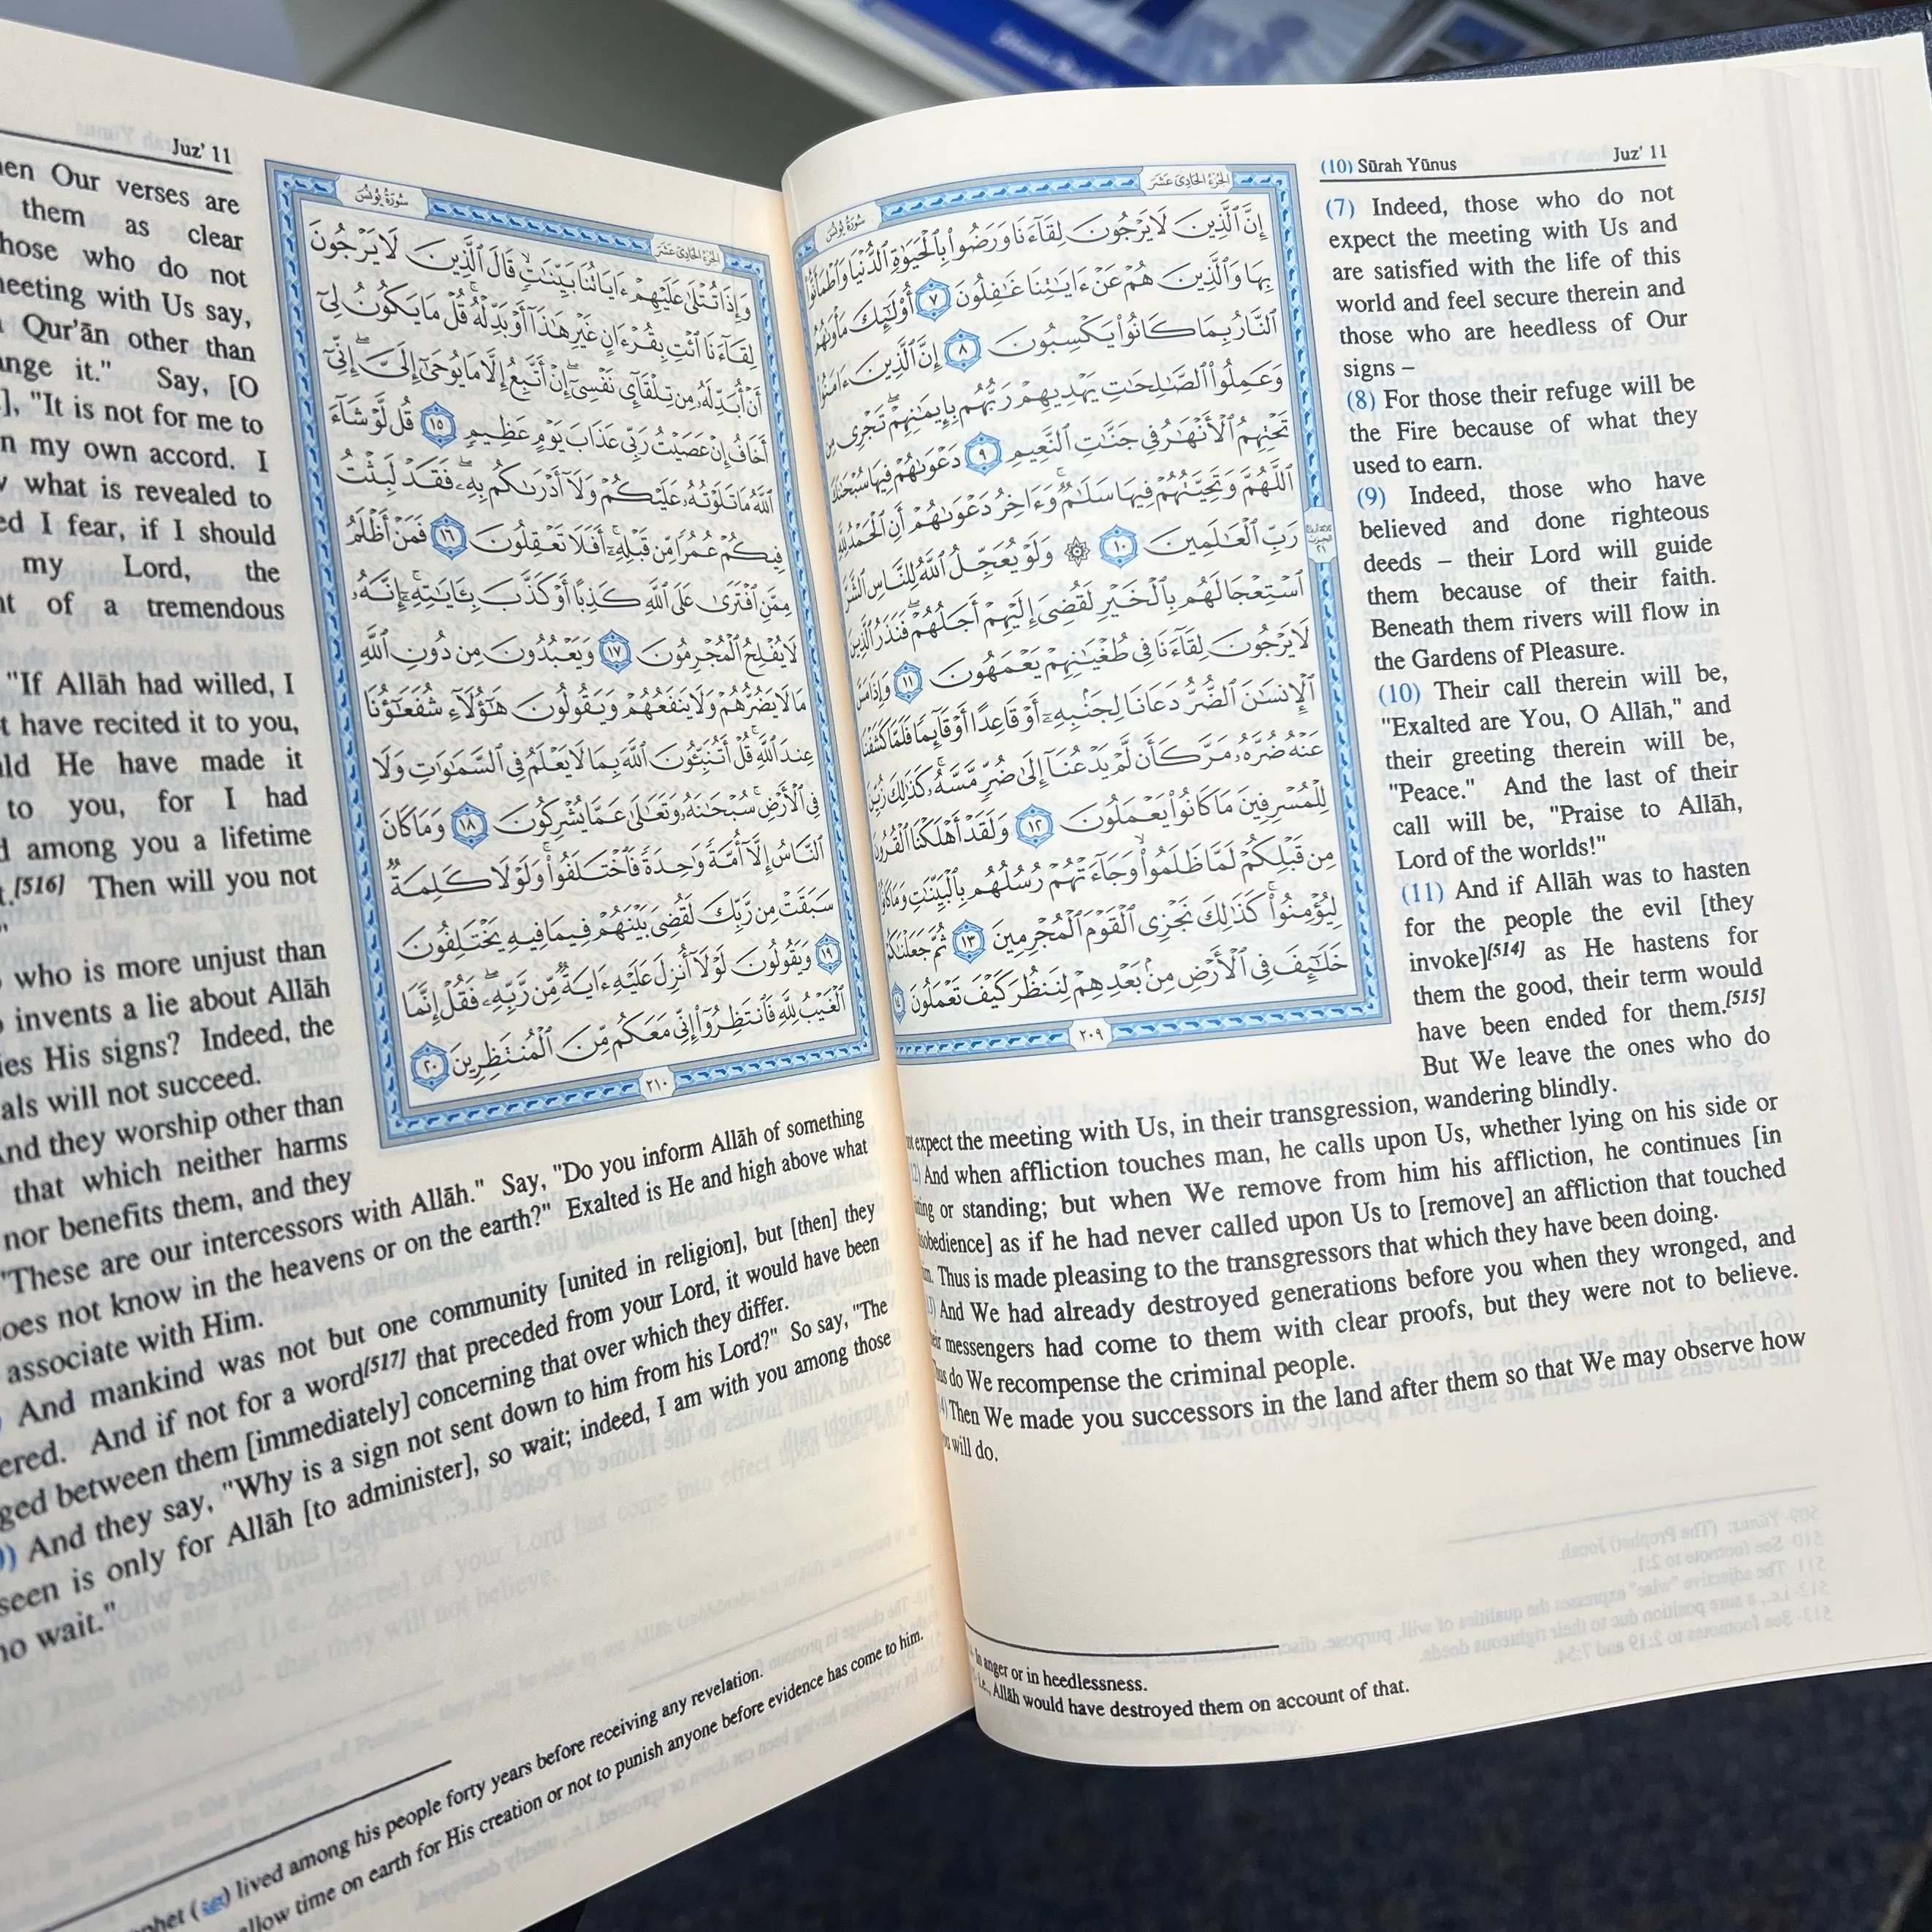 (10) Sūrah Yūnus
Juz' 11
سُورَةُ يُونُسَ
الجُزْءُ الحَادِي عَشَرَ
إِنَّ ٱلَّذِينَ لَا يَرْجُونَ لِقَآءَنَا وَرَضُوا۟ بِٱلْحَيَوٰةِ ٱلدُّنْيَا وَٱطْمَأَنُّوا۟
بِهَا وَٱلَّذِينَ هُمْ عَنْ ءَايَـٰتِنَا غَـٰفِلُونَ ٧ أُو۟لَـٰٓئِكَ مَأْوَىٰهُمُ
ٱلنَّارُ بِمَا كَانُوا۟ يَكْسِبُونَ ٨ إِنَّ ٱلَّذِينَ ءَامَنُوا۟
وَعَمِلُوا۟ ٱلصَّـٰلِحَـٰتِ يَهْدِيهِمْ رَبُّهُم بِإِيمَـٰنِهِمْ ۖ تَجْرِى مِن
تَحْتِهِمُ ٱلْأَنْهَـٰرُ فِى جَنَّـٰتِ ٱلنَّعِيمِ ٩ دَعْوَىٰهُمْ فِيهَا سُبْحَـٰنَكَ
ٱللَّهُمَّ وَتَحِيَّتُهُمْ فِيهَا سَلَـٰمٌ ۚ وَءَاخِرُ دَعْوَىٰهُمْ أَنِ ٱلْحَمْدُ لِلَّهِ
رَبِّ ٱلْعَـٰلَمِينَ ١٠ ۞ وَلَوْ يُعَجِّلُ ٱللَّهُ لِلنَّاسِ ٱلشَّرَّ
ٱسْتِعْجَالَهُم بِٱلْخَيْرِ لَقُضِىَ إِلَيْهِمْ أَجَلُهُمْ ۖ فَنَذَرُ ٱلَّذِينَ
لَا يَرْجُونَ لِقَآءَنَا فِى طُغْيَـٰنِهِمْ يَعْمَهُونَ ١١ وَإِذَا مَسَّ
ٱلْإِنسَـٰنَ ٱلضُّرُّ دَعَانَا لِجَنۢبِهِۦٓ أَوْ قَاعِدًا أَوْ قَآئِمًا فَلَمَّا كَشَفْنَا
عَنْهُ ضُرَّهُۥ مَرَّ كَأَن لَّمْ يَدْعُنَآ إِلَىٰ ضُرٍّ مَّسَّهُۥ ۚ كَذَٰلِكَ زُيِّنَ
لِلْمُسْرِفِينَ مَا كَانُوا۟ يَعْمَلُونَ ١٢ وَلَقَدْ أَهْلَكْنَا ٱلْقُرُونَ
مِن قَبْلِكُمْ لَمَّا ظَلَمُوا۟ ۙ وَجَآءَتْهُمْ رُسُلُهُم بِٱلْبَيِّنَـٰتِ وَمَا كَانُوا۟
لِيُؤْمِنُوا۟ ۚ كَذَٰلِكَ نَجْزِى ٱلْقَوْمَ ٱلْمُجْرِمِينَ ١٣ ثُمَّ جَعَلْنَـٰكُمْ
خَلَـٰٓئِفَ فِى ٱلْأَرْضِ مِنۢ بَعْدِهِمْ لِنَنظُرَ كَيْفَ تَعْمَلُونَ ١٤
٢٠٩
(7) Indeed, those who do not
expect the meeting with Us and
are satisfied with the life of this
world and feel secure therein and
those who are heedless of Our
signs –
(8) For those their refuge will be
the Fire because of what they
used to earn.
(9) Indeed, those who have
believed and done righteous
deeds – their Lord will guide
them because of their faith.
Beneath them rivers will flow in
the Gardens of Pleasure.
(10) Their call therein will be,
"Exalted are You, O Allāh," and
their greeting therein will be,
"Peace." And the last of their
call will be, "Praise to Allāh,
Lord of the worlds!"
(11) And if Allāh was to hasten
for the people the evil [they
invoke][514] as He hastens for
them the good, their term would
have been ended for them.[515]
But We leave the ones who do
expect the meeting with Us, in their transgression, wandering blindly.
And when affliction touches man, he calls upon Us, whether lying on his side or
or standing; but when We remove from him his affliction, he continues [in
as if he had never called upon Us to [remove] an affliction that touched
Thus is made pleasing to the transgressors that which they have been doing.
And We had already destroyed generations before you when they wronged, and
messengers had come to them with clear proofs, but they were not to believe.
do We recompense the criminal people.
Then We made you successors in the land after them so that We may observe how
will do.
In anger or in heedlessness.
i.e., Allāh would have destroyed them on account of that.
Juz' 11
سُورَةُ يُونُسَ
الجُزْءُ الحَادِي عَشَرَ
وَإِذَا تُتْلَىٰ عَلَيْهِمْ ءَايَاتُنَا بَيِّنَـٰتٍ ۙ قَالَ ٱلَّذِينَ لَا يَرْجُونَ
لِقَآءَنَا ٱئْتِ بِقُرْءَانٍ غَيْرِ هَـٰذَآ أَوْ بَدِّلْهُ ۚ قُلْ مَا يَكُونُ لِىٓ
أَنْ أُبَدِّلَهُۥ مِن تِلْقَآئِ نَفْسِىٓ ۖ إِنْ أَتَّبِعُ إِلَّا مَا يُوحَىٰٓ إِلَىَّ ۖ إِنِّىٓ
أَخَافُ إِنْ عَصَيْتُ رَبِّى عَذَابَ يَوْمٍ عَظِيمٍ ١٥ قُل لَّوْ شَآءَ
ٱللَّهُ مَا تَلَوْتُهُۥ عَلَيْكُمْ وَلَآ أَدْرَىٰكُم بِهِۦ ۖ فَقَدْ لَبِثْتُ
فِيكُمْ عُمُرًا مِّن قَبْلِهِۦٓ ۚ أَفَلَا تَعْقِلُونَ ١٦ فَمَنْ أَظْلَمُ
مِمَّنِ ٱفْتَرَىٰ عَلَى ٱللَّهِ كَذِبًا أَوْ كَذَّبَ بِـَٔايَـٰتِهِۦٓ ۚ إِنَّهُۥ
لَا يُفْلِحُ ٱلْمُجْرِمُونَ ١٧ وَيَعْبُدُونَ مِن دُونِ ٱللَّهِ
مَا لَا يَضُرُّهُمْ وَلَا يَنفَعُهُمْ وَيَقُولُونَ هَـٰٓؤُلَآءِ شُفَعَـٰٓؤُنَا
عِندَ ٱللَّهِ ۚ قُلْ أَتُنَبِّـُٔونَ ٱللَّهَ بِمَا لَا يَعْلَمُ فِى ٱلسَّمَـٰوَٰتِ وَلَا
فِى ٱلْأَرْضِ ۚ سُبْحَـٰنَهُۥ وَتَعَـٰلَىٰ عَمَّا يُشْرِكُونَ ١٨ وَمَا كَانَ
ٱلنَّاسُ إِلَّآ أُمَّةً وَٰحِدَةً فَٱخْتَلَفُوا۟ ۚ وَلَوْلَا كَلِمَةٌ
سَبَقَتْ مِن رَّبِّكَ لَقُضِىَ بَيْنَهُمْ فِيمَا فِيهِ يَخْتَلِفُونَ
١٩ وَيَقُولُونَ لَوْلَآ أُنزِلَ عَلَيْهِ ءَايَةٌ مِّن رَّبِّهِۦ ۖ فَقُلْ إِنَّمَا
ٱلْغَيْبُ لِلَّهِ فَٱنتَظِرُوٓا۟ إِنِّى مَعَكُم مِّنَ ٱلْمُنتَظِرِينَ ٢٠
٢١٠
Our verses are
them as clear
who do not
meeting with Us say,
Qur'ān other than
it." Say, [O
"It is not for me to
my own accord. I
what is revealed to
I fear, if I should
my Lord, the
of a tremendous
"If Allāh had willed, I
have recited it to you,
He have made it
to you, for I had
among you a lifetime
[516] Then will you not
who is more unjust than
invents a lie about Allāh
His signs? Indeed, the
will not succeed.
And they worship other than
that which neither harms
nor benefits them, and they
"These are our intercessors with Allāh." Say, "Do you inform Allāh of something
does not know in the heavens or on the earth?" Exalted is He and high above what
associate with Him.
And mankind was not but one community [united in religion], but [then] they
And if not for a word[517] that preceded from your Lord, it would have been
between them [immediately] concerning that over which they differ.
And they say, "Why is a sign not sent down to him from his Lord?" So say, "The
is only for Allāh [to administer], so wait; indeed, I am with you among those
wait."
lived among his people forty years before receiving any revelation.
allow time on earth for His creation or not to punish anyone before evidence has come to him.